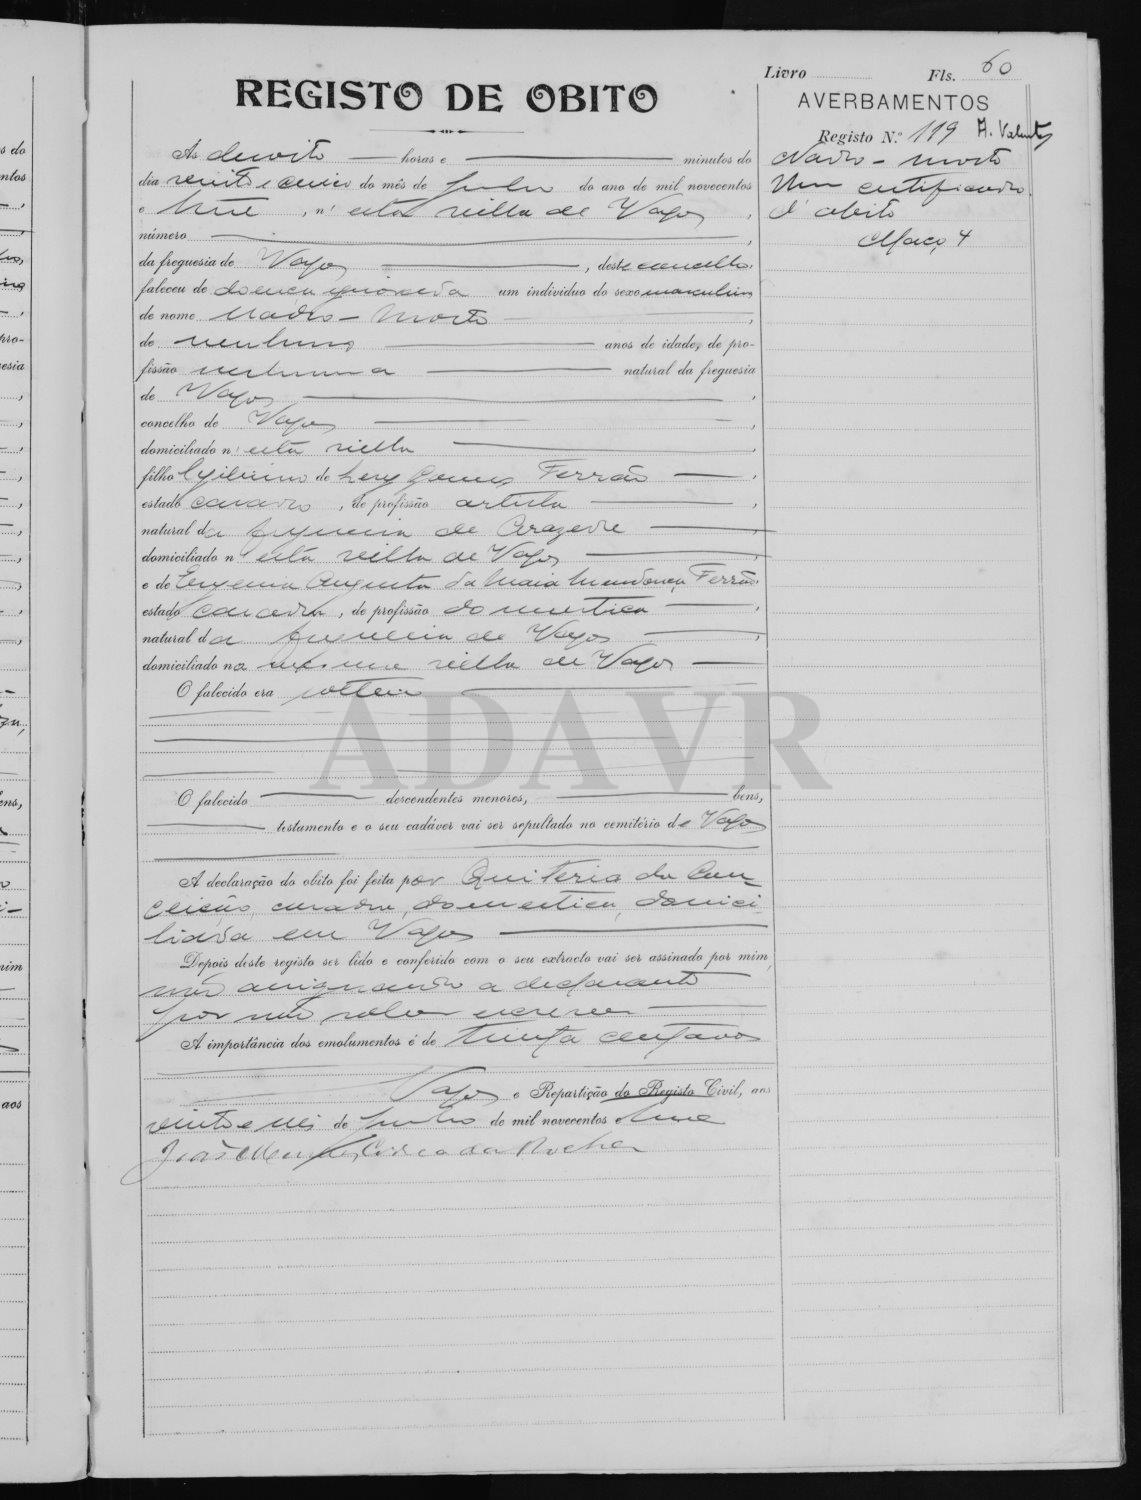 Livro Fls. 60
REGISTO DE OBITO
AVERBAMENTOS
Registo N.º 119 A. Valente
Nado-morto
Um certificado
d'obito
Maço 4
Às dezoito horas e minutos do
dia vinte e cinco do mês de do ano de mil novecentos
e, n'esta villa de Vagos,
número,
da freguesia de Vagos, deste concelho
faleceu de doença ignorada um individuo do sexo masculino
de nome Nado-Morto,
de nenhuns anos de idade, de pro-
fissão nenhuma natural da freguesia
de Vagos,
concelho de Vagos,
domiciliado n'esta villa,
filho legitimo de Gomes Ferrão,
estado casado, de profissão artista,
natural da freguesia de Arazede
domiciliado n'esta villa de Vagos,
e de Eugenia Augusta da Maia Mendonça Ferrão
estado casada, de profissão domestica,
natural da freguesia de Vagos,
domiciliado na mesma villa de Vagos
O falecido era solteiro
ADAVR
O falecido descendentes menores, bens,
testamento e o seu cadáver vai ser sepultado no cemitério de Vagos
A declaração do obito foi feita por Quiteria da Con-
ceição, casada, domestica, domici-
liada em Vagos
Depois deste registo ser lido e conferido com o seu extracto vai ser assinado por mim,
não assignando a declarante
por não saber escrever
A importância dos emolumentos é de trinta centavos
Vagos e Repartição do Registo Civil, aos
vinte e seis de de mil novecentos e
João da Rocha